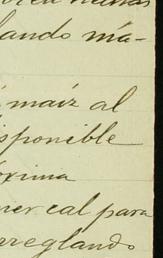 lando má-
maíz al
isponible
óxima
ner cal para
rreglando